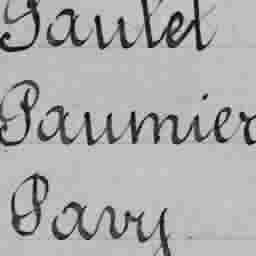 Paulet
Paumier
Pavy